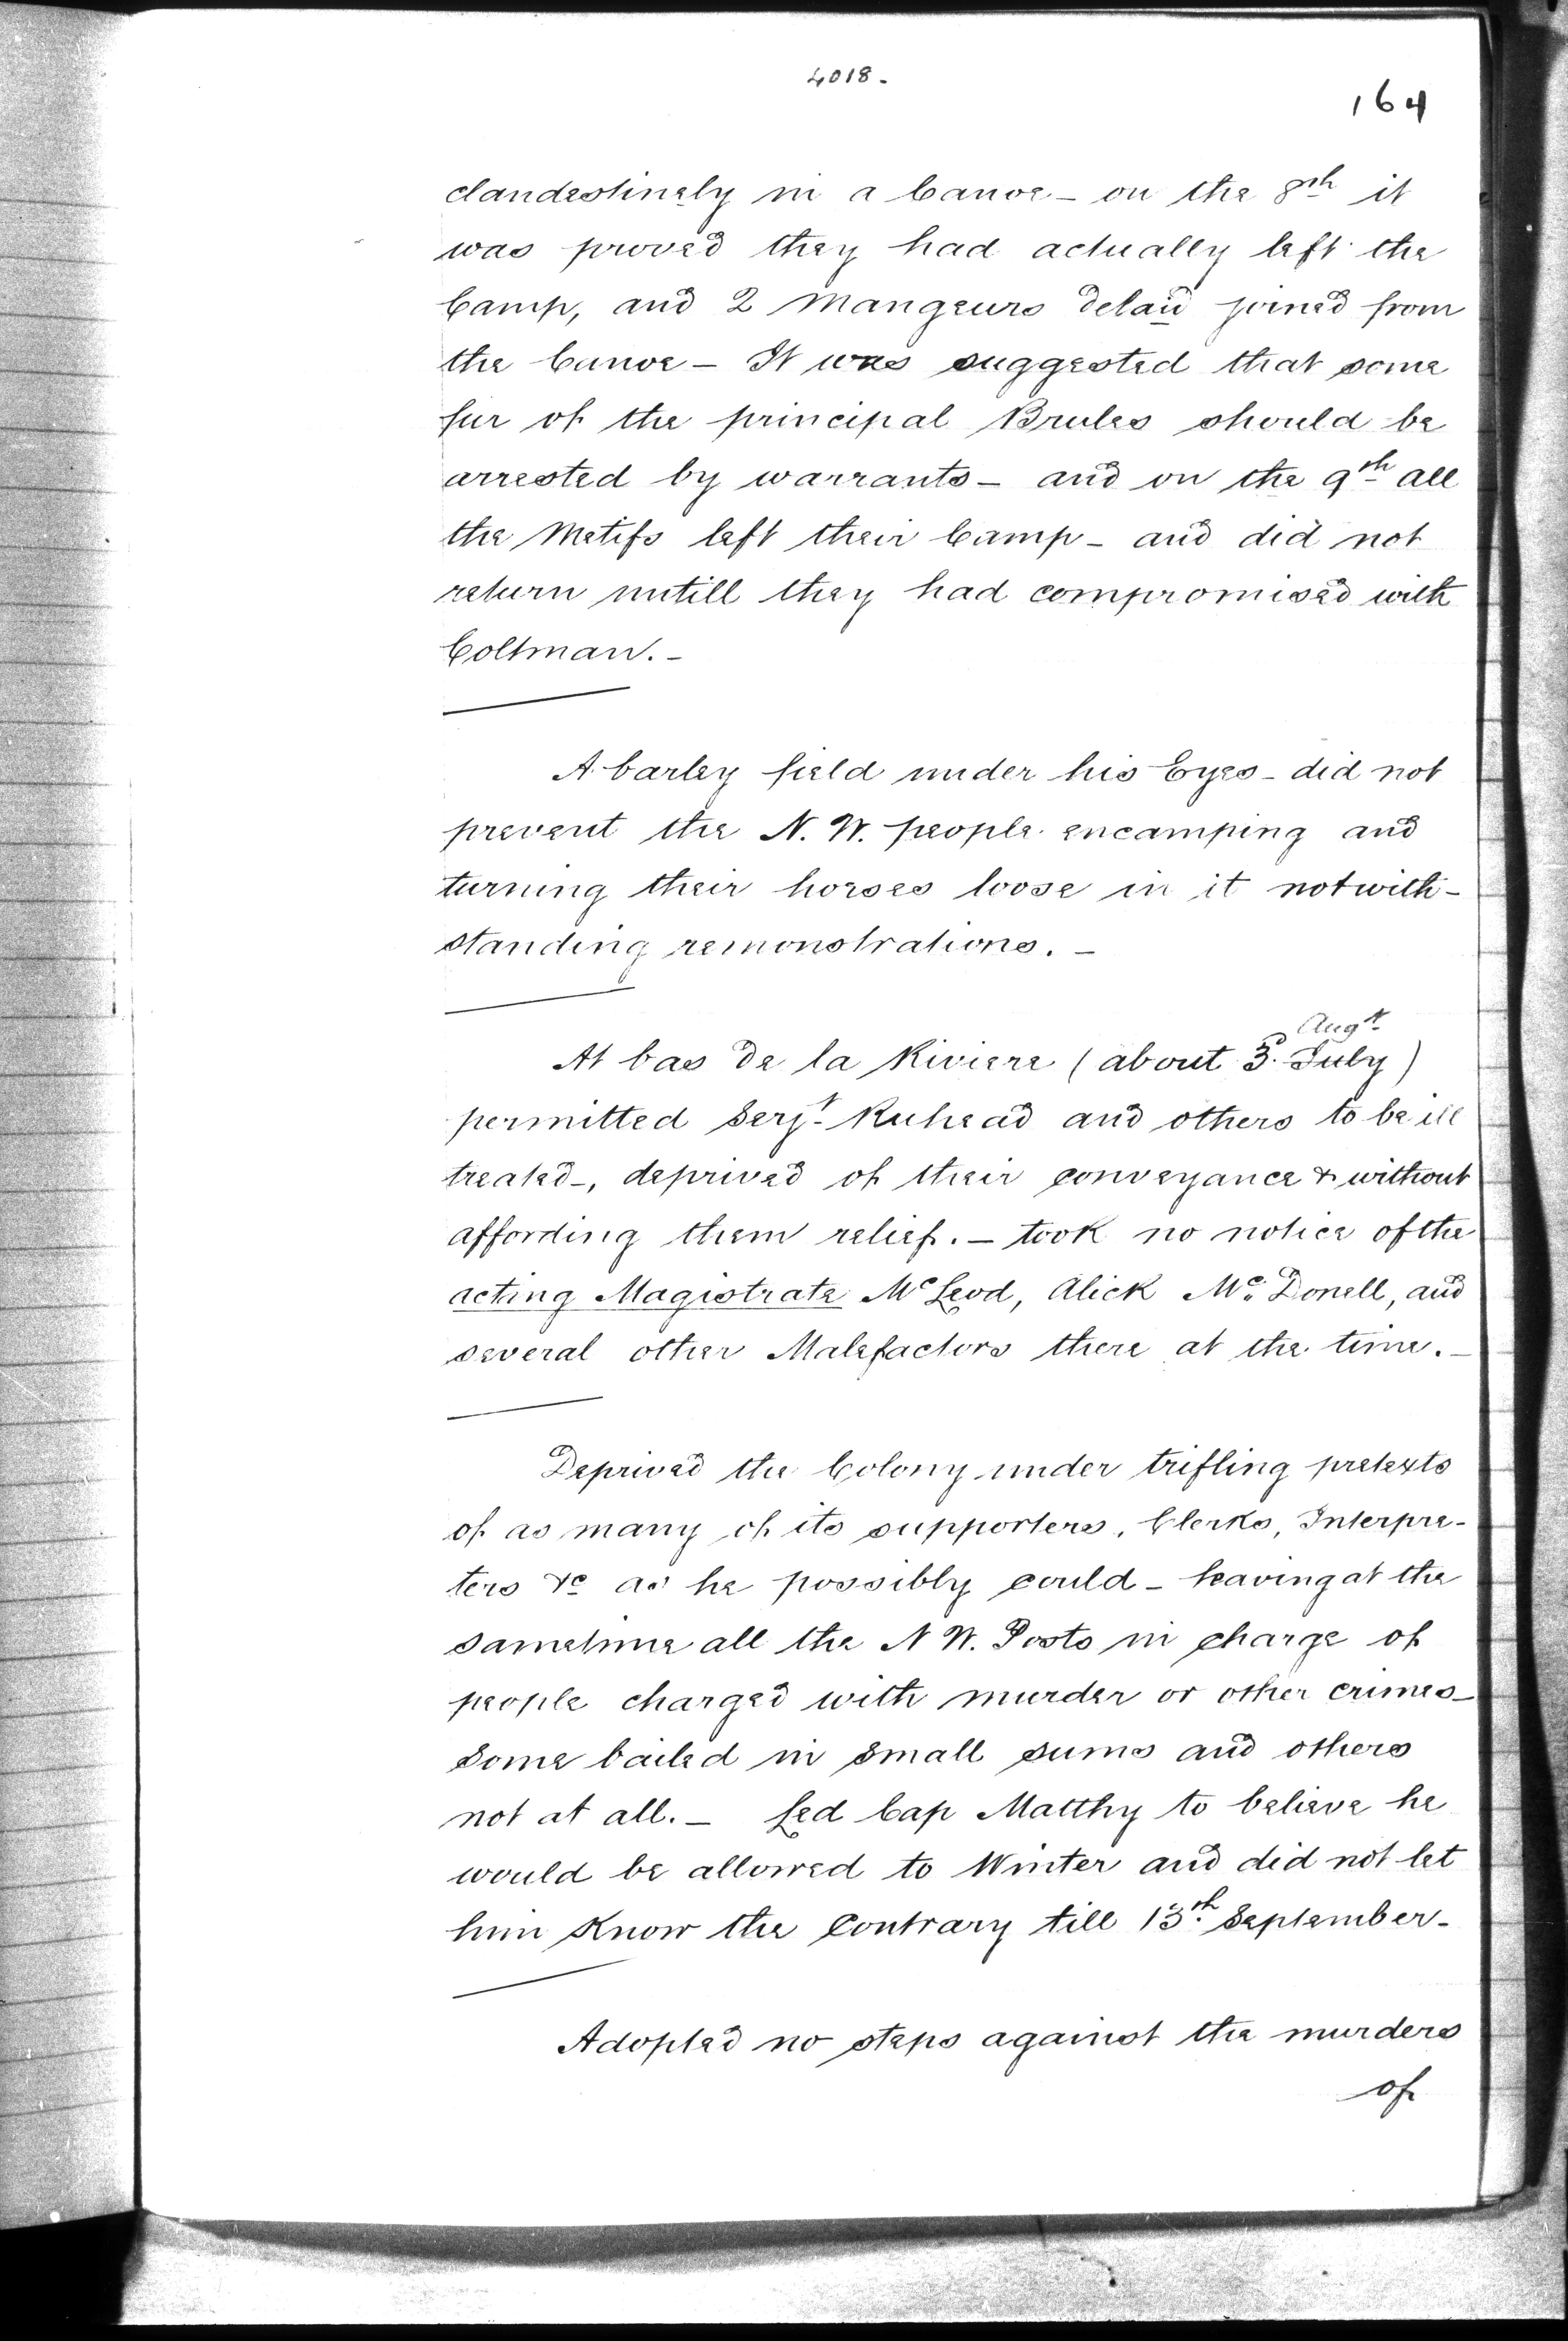 4018.
164
clandestinely in a Canoe - on the 8th it
was proved they had actually left the
Camp, and 2 Mangeurs delard joined from
the Canoe - It was suggested that some
fur of the principal Brules should be
arrested by warrants - and on the 9th all
the Metifs left their Camp - and did not
return untill they had compromised with
Coltman. -
A barley field under his Eyes - did not
prevent the N. W. people encamping and
turning their horses loose in it notwith-
standing remonstrations. -
Augt
At bas de la Riviere (about 3d. July)
permitted Serjt. and others to be ill
treated -, deprived of their conveyance & without
affording them relief. - took no notice of the
acting Magistrate Mc Leod, Alick Mc. Donell, and
several other Malefactors there at the time. -
Deprived the Colony under trifling pretexts
of as many of its supporters, Clerks, Interpre-
ters &c as he possibly could - leaving at the
sametime all the N W. Posts in charge of
people charged with murder or other crimes -
Some bailed in small sums and others
not at all. - Led Cap Matthy to believe he
would be allowed to Winter and did not let
him know the Contrary till 13th. September -
Adopted no steps against the murders
of